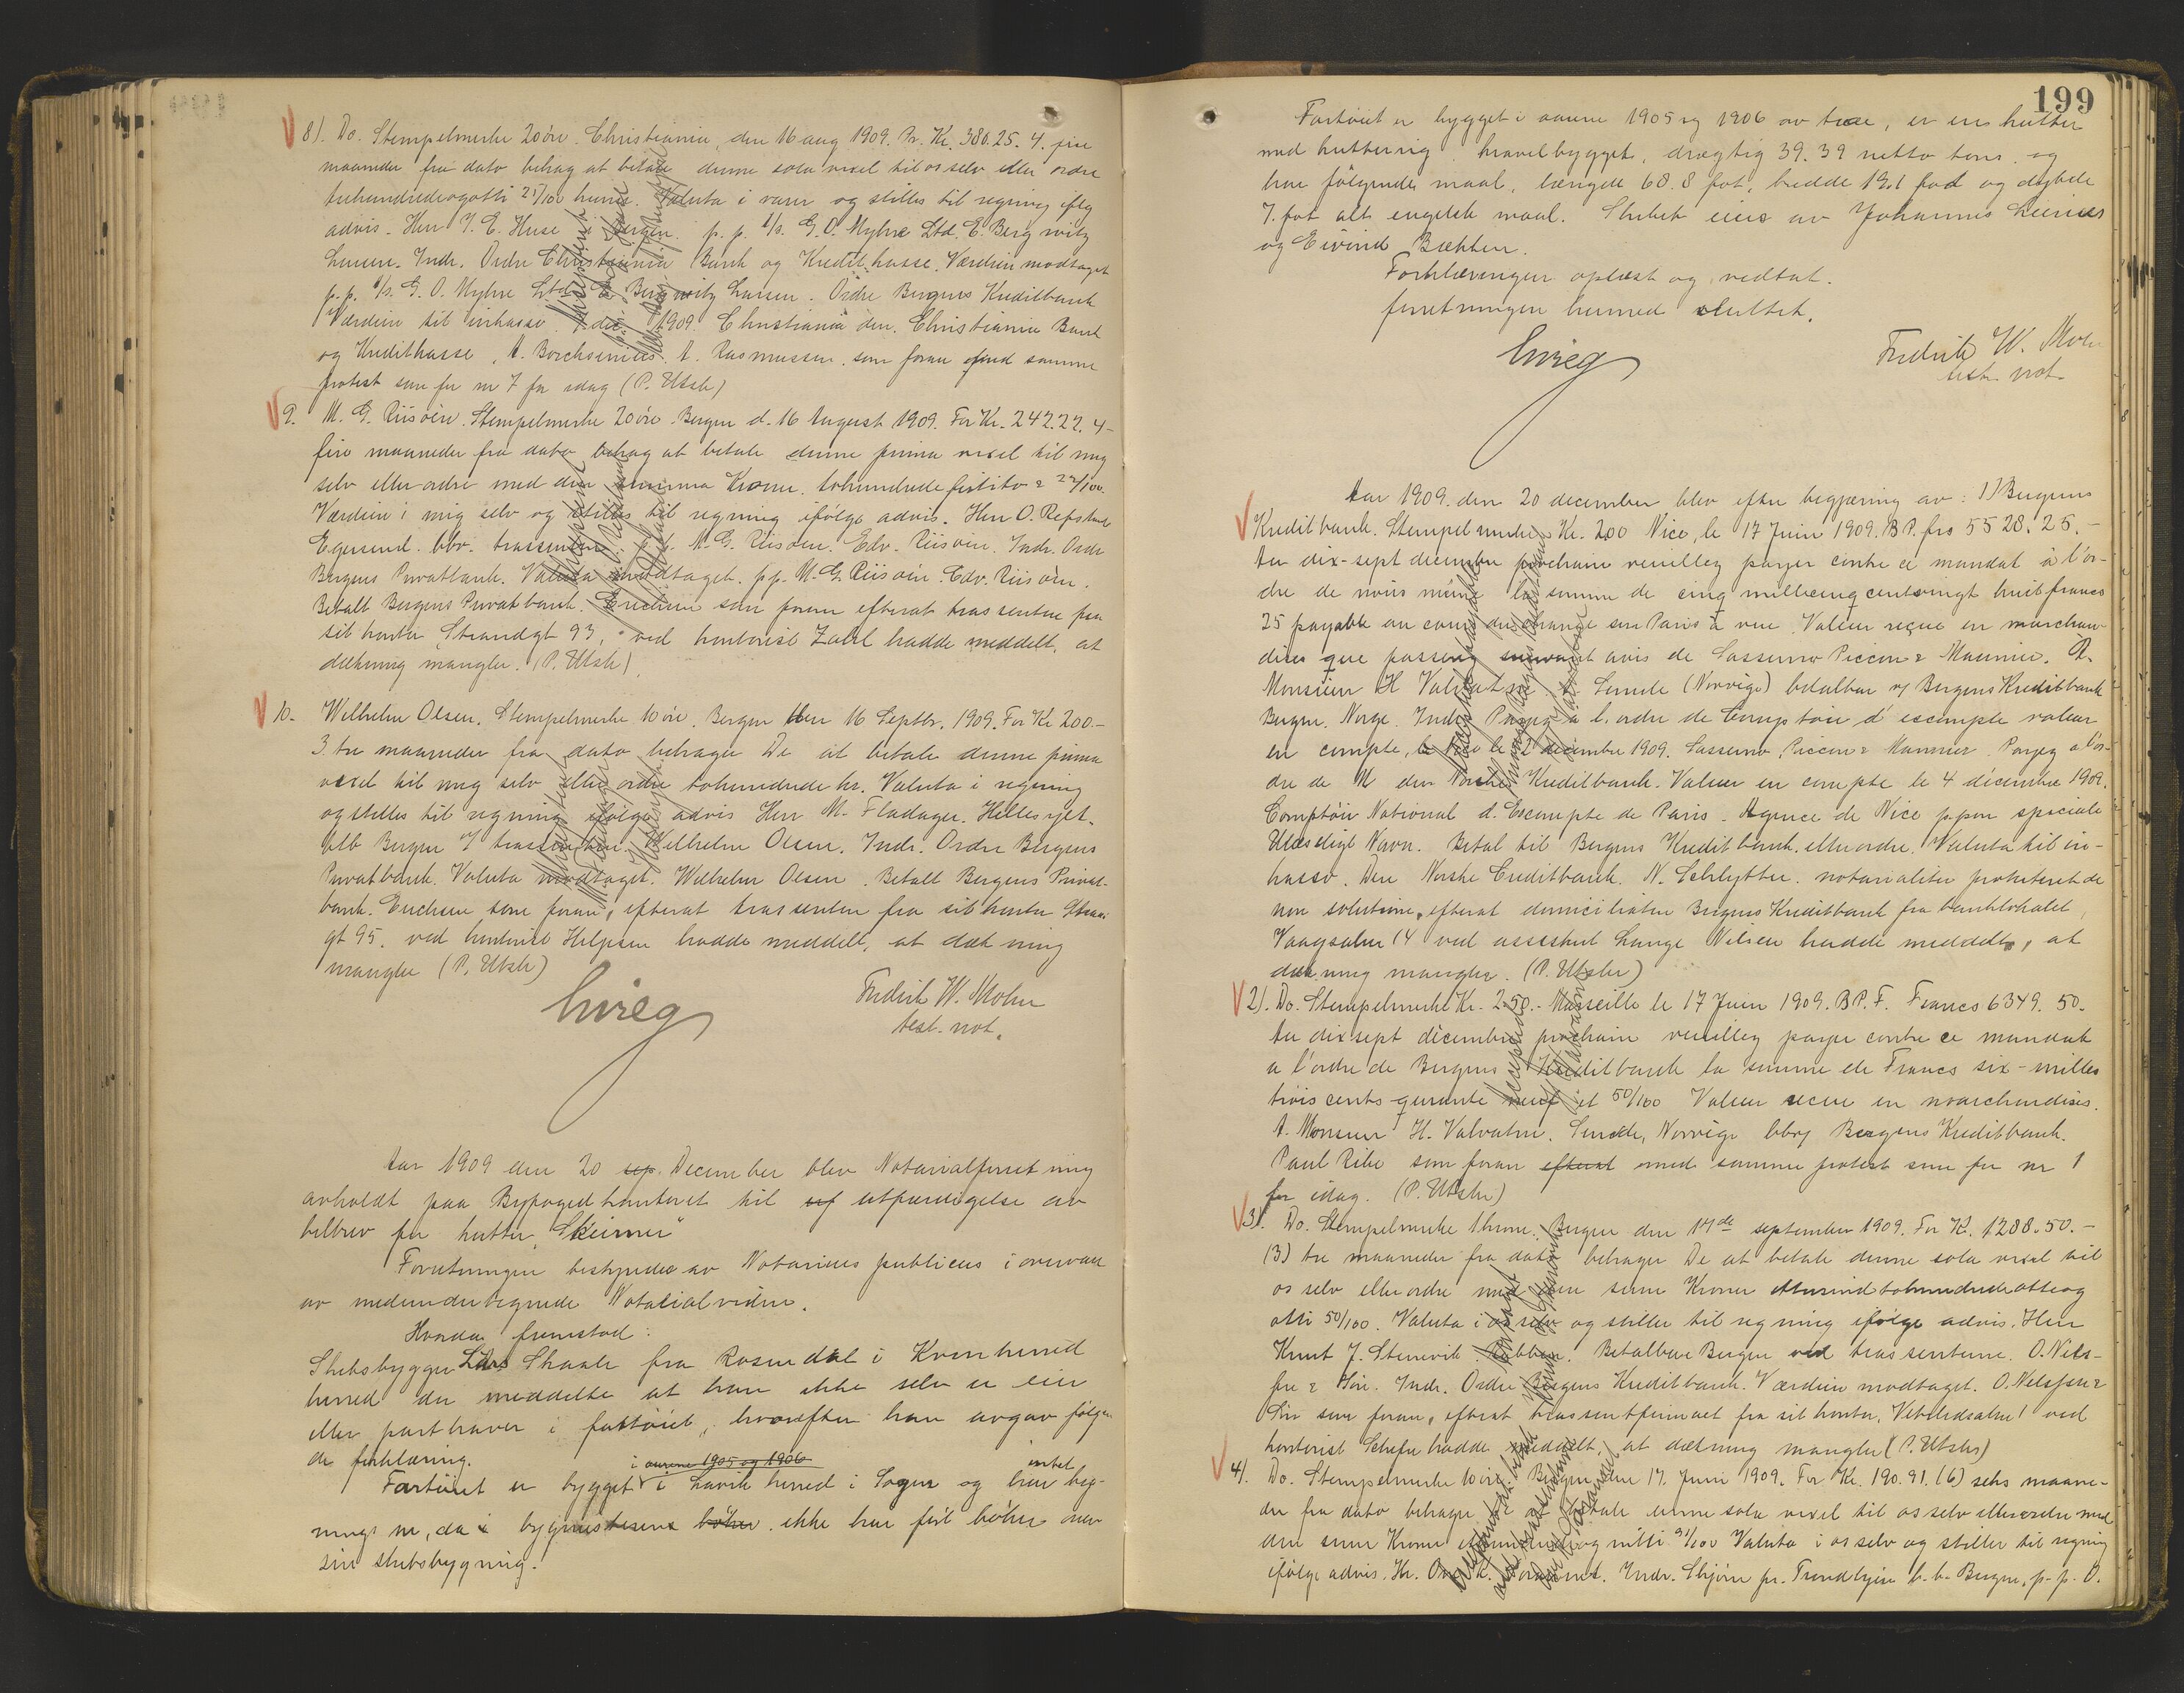 8). Do. Stempelmerke 20 øre. Christiania, den 16 aug 1909. Pr. Kr. 386.25. 4. fire
maaneder fra dato behag at betale denne sola vexel til os selv eller ordre
trehundredeogotti 25/100 kroner. Valuta i varer og stilles til regning iflg
advis. Herr J. E. Huse i Bergen. p. p. A/s. G. O. Myhre Ltd. E. Berg witz
Larsen. Indr. Ordre Christiania Bank og Kredit kasse. Værdien modtaget
p. p. A/s. G. O. Myhre Ltd. E. Berg witz Larsen. Ordre Bergens Kreditbank
Værdien til inkasso. 1909. Christiania den. Christiania Bank
og Kreditkasse. A. Borchsenius. A. Rasmussen. som foran med samme
protest som for nr 7 for idag (P. Utsk)
9. M. G. Riisøen. Stempelmerke 20 øre. Bergen d. 16 August 1909. For Kr. 242.22. 4-
fire maaneder fra dato behag at betale denne prima vexel til mig
selv eller ordre med den summa Kroner. tohundrede firtito & 22/100.
Værdien i mig selv og stilles til regning ifølge advis. Herr O. Refsland
Egersund. bbr. trassenten. M. G. Riisøen. Edv. Riisøen. Indr. Ordre
Bergens Privatbank. Valuta modtaget. pp. M. G. Riisøen. Edv. Riisøen.
Betalt Bergens Privatbank. Erichsen som foran efterat trassenten fra
sit kontor Strandgt 93, ved kontorist Zahl hadde meddelt, at
dækning mangler. (P. Utsk)
10. Wilhelm Olsen. Stempelmerke 10 øre. Bergen den 16 Septbr. 1909. For Kr 200.-
3 tre maaneder fra dato behager De at betale denne prima
vexel til mig selv eller ordre tohundrede kr. Valuta i regning
og stilles til regning ifølge advis Herr M. Fladager. Hillesøet.
blb Bergen trassenten. Wilhelm Olsen. Indr. Ordre Bergens
Privatbank. Valuta modtaget. Wilhelm Olsen. Betalt Bergens Privat-
bank. Erichsen som foran, efterat trassenten fra sit kontor Strand
gt 95. ved kontorist Helgesen hadde meddelt, at dæk ning
mangler (P. Utsk)
Fredrik W. Mohn
test. not.
Aar 1909 den 20 sep. December blev Notarialforret ning
avholdt paa Byfogedkontoret til utfærdigelse av
bilbrev for kutter "Skirner"
Forretningen bestyredes av Notarius publicus i overvær
av medundertegnede Notarialvidne.
Hvorda fremstod:
Skibsbygger Lars Skaale fra Rosendal i Kvinherred
herred der meddelte at han ikke selv er eier
eller parthaver i fartøiet, hvorefter han avgav følgen
de forklæring.
i aarene 1905 og 1906 intet
Fartøiet er bygget i Lavik herred i Sogn og har byg-
nings nr, da bygmesteren ikke har ført bøker over
sin skibsbygning.
199
Fartøiet er bygget i aarene 1905 og 1906 av træ, er en kutter
med kutterrig, kravelbygget, drægtig 39.39 netto tons. og
har følgende maal, længde 68.8 fot, bredde 19.1 fod og dybde
7. fot alt engelsk maal. Skibet eies av Johannes
og Eivind Bækken.
Forklæringen oplæst og vedtat.
forretningen hermed sluttet.
Fredrik W. Mohn
test. not.
Aar 1909. den 20 december blev efter begjæring av: 1) Bergens
Kreditbank. Stempelmerke Kr. 2.00 Nice, le 17 Juin 1909. B.P. frs 5528.25.-
Au dix-sept décembre prochain veuillez payer contre ce mandat à l'or-
dre de nous même la somme de cinq millecinqcentvingt huit francs
25 payable au cours du change sur Paris à vue. Valeur reçue en marchan-
dises que passerez suivant avis de Sasserno Piccon & Maunier. A.
Monsieur H Valvatne. Sunde (Norvége) betalbar v/ Bergens Kreditbank
Bergen. Norge. Indr. Payez a l. ordre de Comptoir d'escompte valeur
en compte, Nice le 2 décembre 1909. Sasserno, Piccon & Maunier Payez a l'or-
dre de M den Norske Kreditbank. Valeur en compte le 4 décembre 1909.
Comptoir National d. Escompte de Paris. Agence de Nice p.pon speciale
Ulæseligt Navn. Betal til Bergens Kreditbank. eller ordre. Valuta til in-
kasso. Den Norske Creditbank. N. Schlytter. notarialiter protesteret de
non solutione, efterat domiciliaten Bergens Kreditbank fra banklokalet,
Vaagsalm 14 ved assistent Lange Nilsen hadde meddelt, at
dækning mangler. (P. Utskr)
2). Do. Stempelmerke Kr. 2.50.- Marseille le 17 Juin 1909. B.P.F. Francs 6349.50.
Au dix sept décembre prochain veuillez payer contre ce mandat
a l'ordre de Bergens Kreditbank la somme de Francs six-milles
trois cents-quarante neuf et 50/100 Valeur recue en marchandises.
A. Monsieur H. Valvatne. Sunde, Norvége bbv/ Bergens Kreditbank.
Paul Ribe som foran efterat med samme protest som for nr 1
for idag. (P. Utskr)
3). Do. Stempelmerke 1 krone. Bergen den 17de september 1909. For K. 1288.50.-
(3) tre maaneder fra dato behager De at betale denne sola vexel til
os selv eller ordre med den sum Kroner ettusindtohundredeotteog
otti 50/100. Valuta i os selv og stilles til regning ifølge advis. Herr
Knut J. Stenevik. Rubben. Betalbar Bergen ved trassenterne. O. Nils-
sen & Søn. Indr. Ordre Bergens Kreditbank. Værdien modtaget. O. Nilssen &
Søn som foran, efterat trassentfirmaet fra sit kontor, Vetrlidsalm 1 ved
kontorist hadde meddelt, at dækning mangler (P. Utskr)
4). Do. Stempelmerke 10 øre. Bergen den 17. Juni 1909. For Kr. 190.91. (6) seks maane-
der fra dato behager De at betale denne sola vexel til os selv eller ordre med
den sum Kroner ethundrede og nitti 91/100 Valuta i os selv og stilles til regning
ifølge advis. Hr. Indr. Skjørn pr. Trondhjem b. b. Bergen. p. p. O.